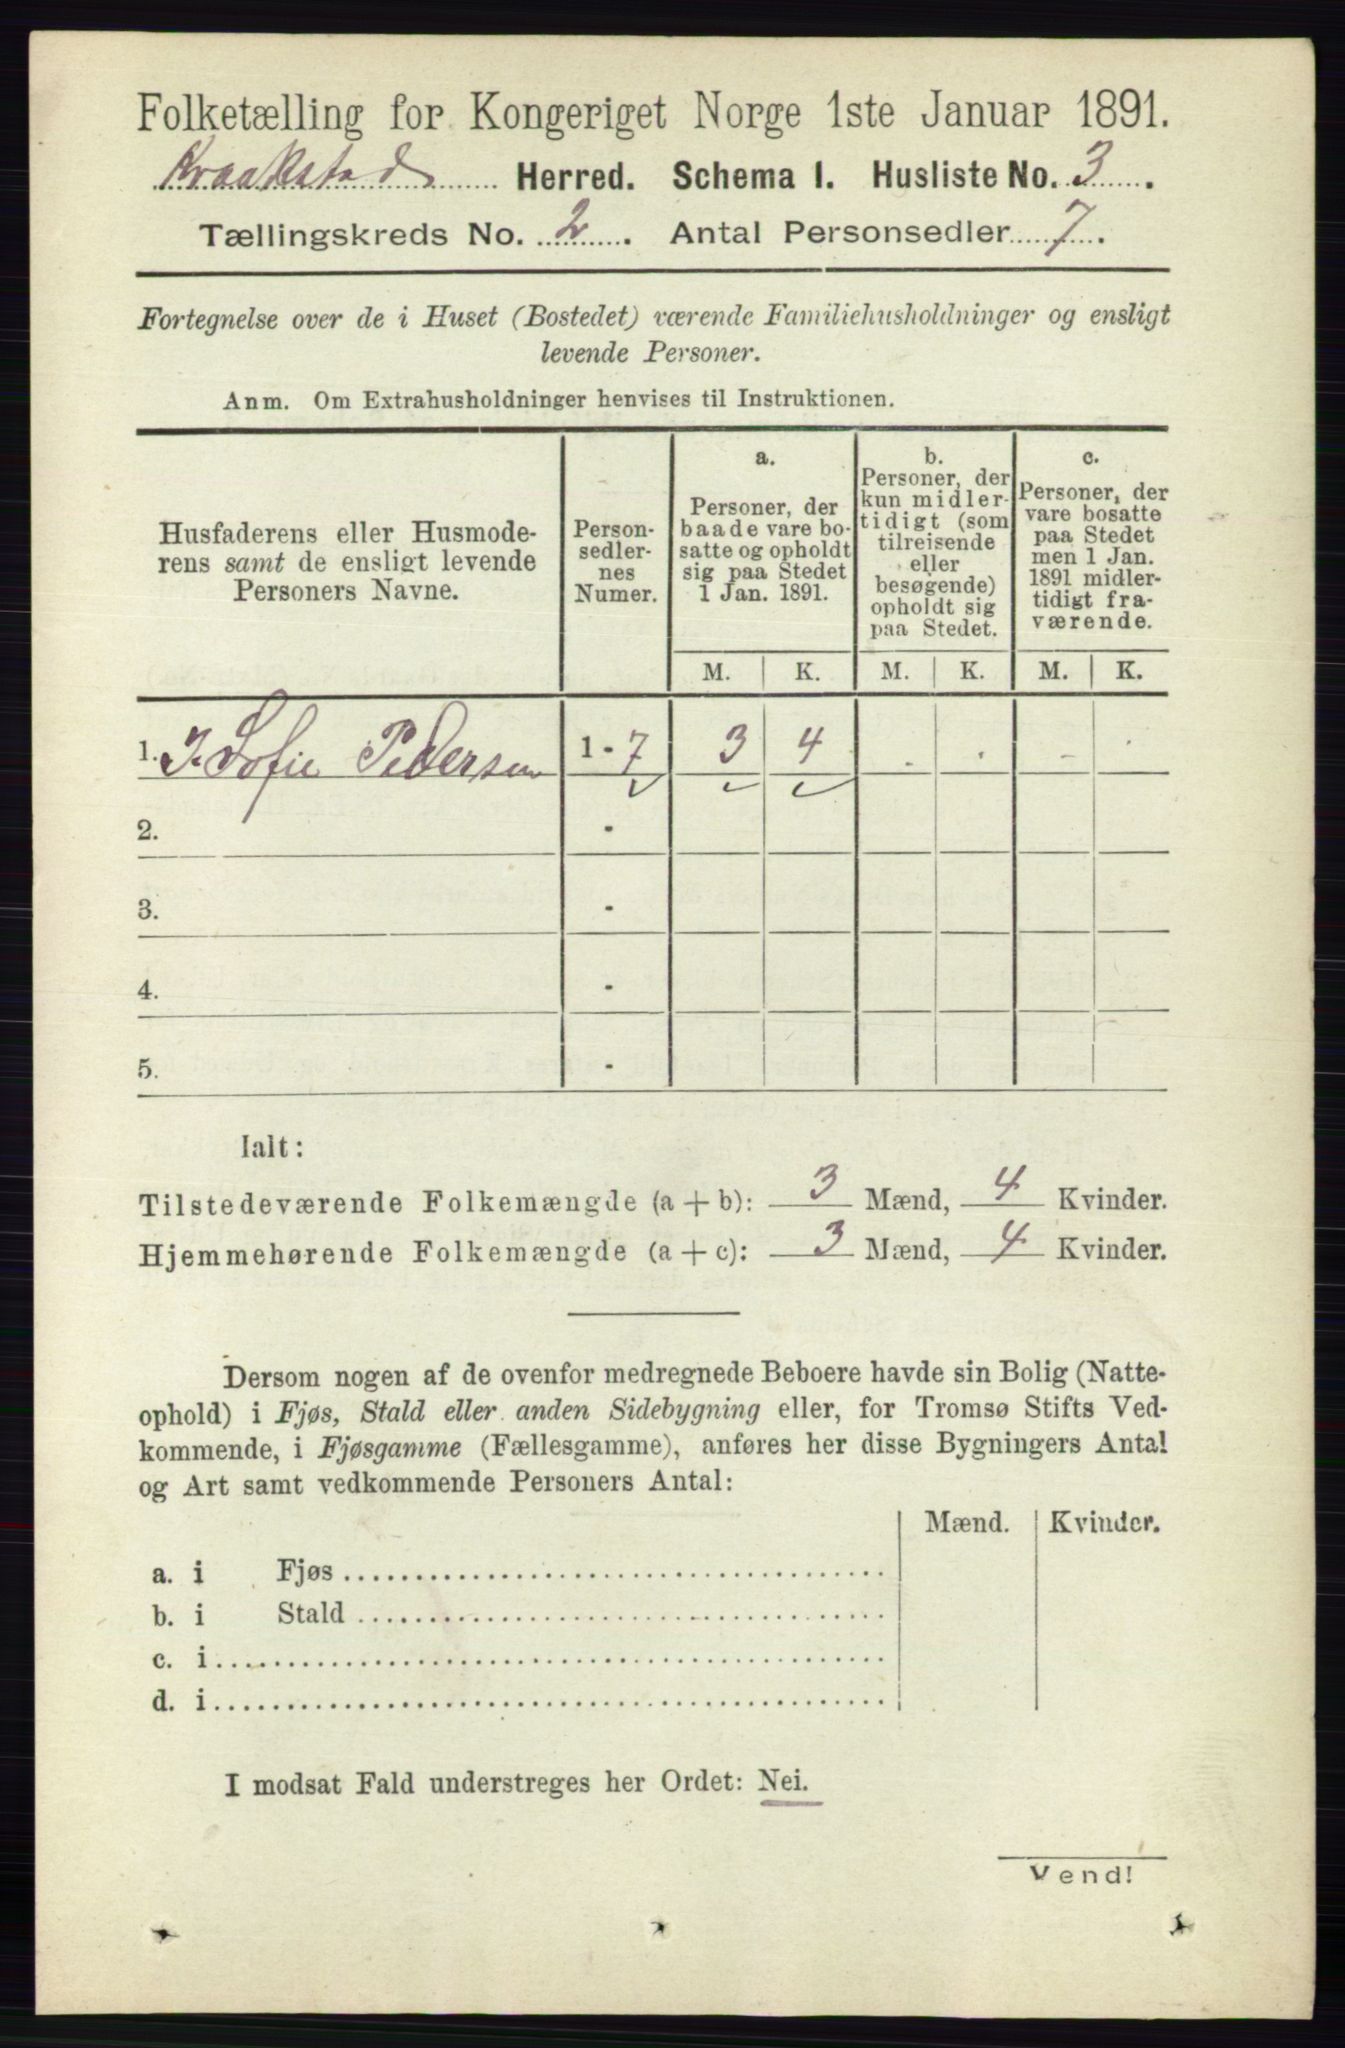 Folketælling for Kongeriget Norge 1ste Januar 1891.
Kraakstad Herred. Schema I. Husliste No. 3.
Tællingskreds No. 2. Antal Personsedler 7.
Fortegnelse over de i Huset (Bostedet) værende Familiehusholdninger og ensligt
levende Personer.
Anm. Om Extrahusholdninger henvises til Instruktionen.
Husfaderens eller Husmode-
rens samt de ensligt levende
Personers Navne.
Person-
sedler-
nes
Numer.
a.
Personer, der
baade vare bo-
satte og opholdt
sig paa Stedet
1 Jan. 1891.
b.
Personer, der
kun midler-
tidigt (som
tilreisende
eller
besøgende)
opholdt sig
paa Stedet.
c.
Personer, der
vare bosatte
paa Stedet
men 1 Jan.
1891 midler-
tidigt fra-
værende.
M. K. M. K. M. K.
1. J. Sofie Pedersen 1 - 7 3 4 . . - .
2. -
3. -
4. -
5. -
Ialt:
Tilstedeværende Folkemængde (a + b): 3 Mænd, 4 Kvinder.
Hjemmehørende Folkemængde (a + c): 3 Mænd, 4 Kvinder.
Dersom nogen af de ovenfor medregnede Beboere havde sin Bolig (Natte-
ophold) i Fjøs, Stald eller anden Sidebygning eller, for Tromsø Stifts Ved-
kommende, i Fjøsgamme (Fællesgamme), anføres her disse Bygningers Antal
og Art samt vedkommende Personers Antal:
Mænd. Kvinder.
a. i Fjøs
b. i Stald
c. i
d. i
I modsat Fald understreges her Ordet: Nei.
Vend!